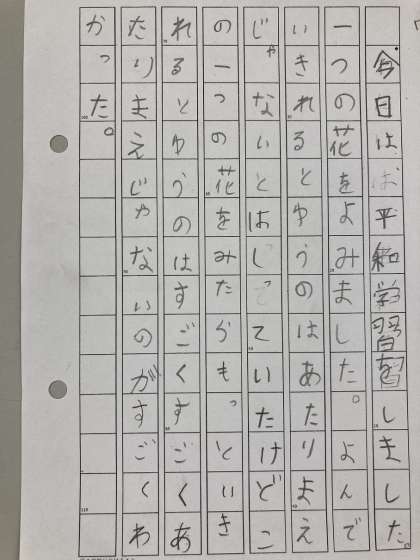 今日は平和学習をしました。
一つの花をよみました。よんで
いきれるとゆうのはあたりまえ
じゃないとはしっていたけどこ
の一つの花をみたらもっといき
れるとゆうのはすごくすごくあ
たりまえじゃないのがすごくわ
かった。